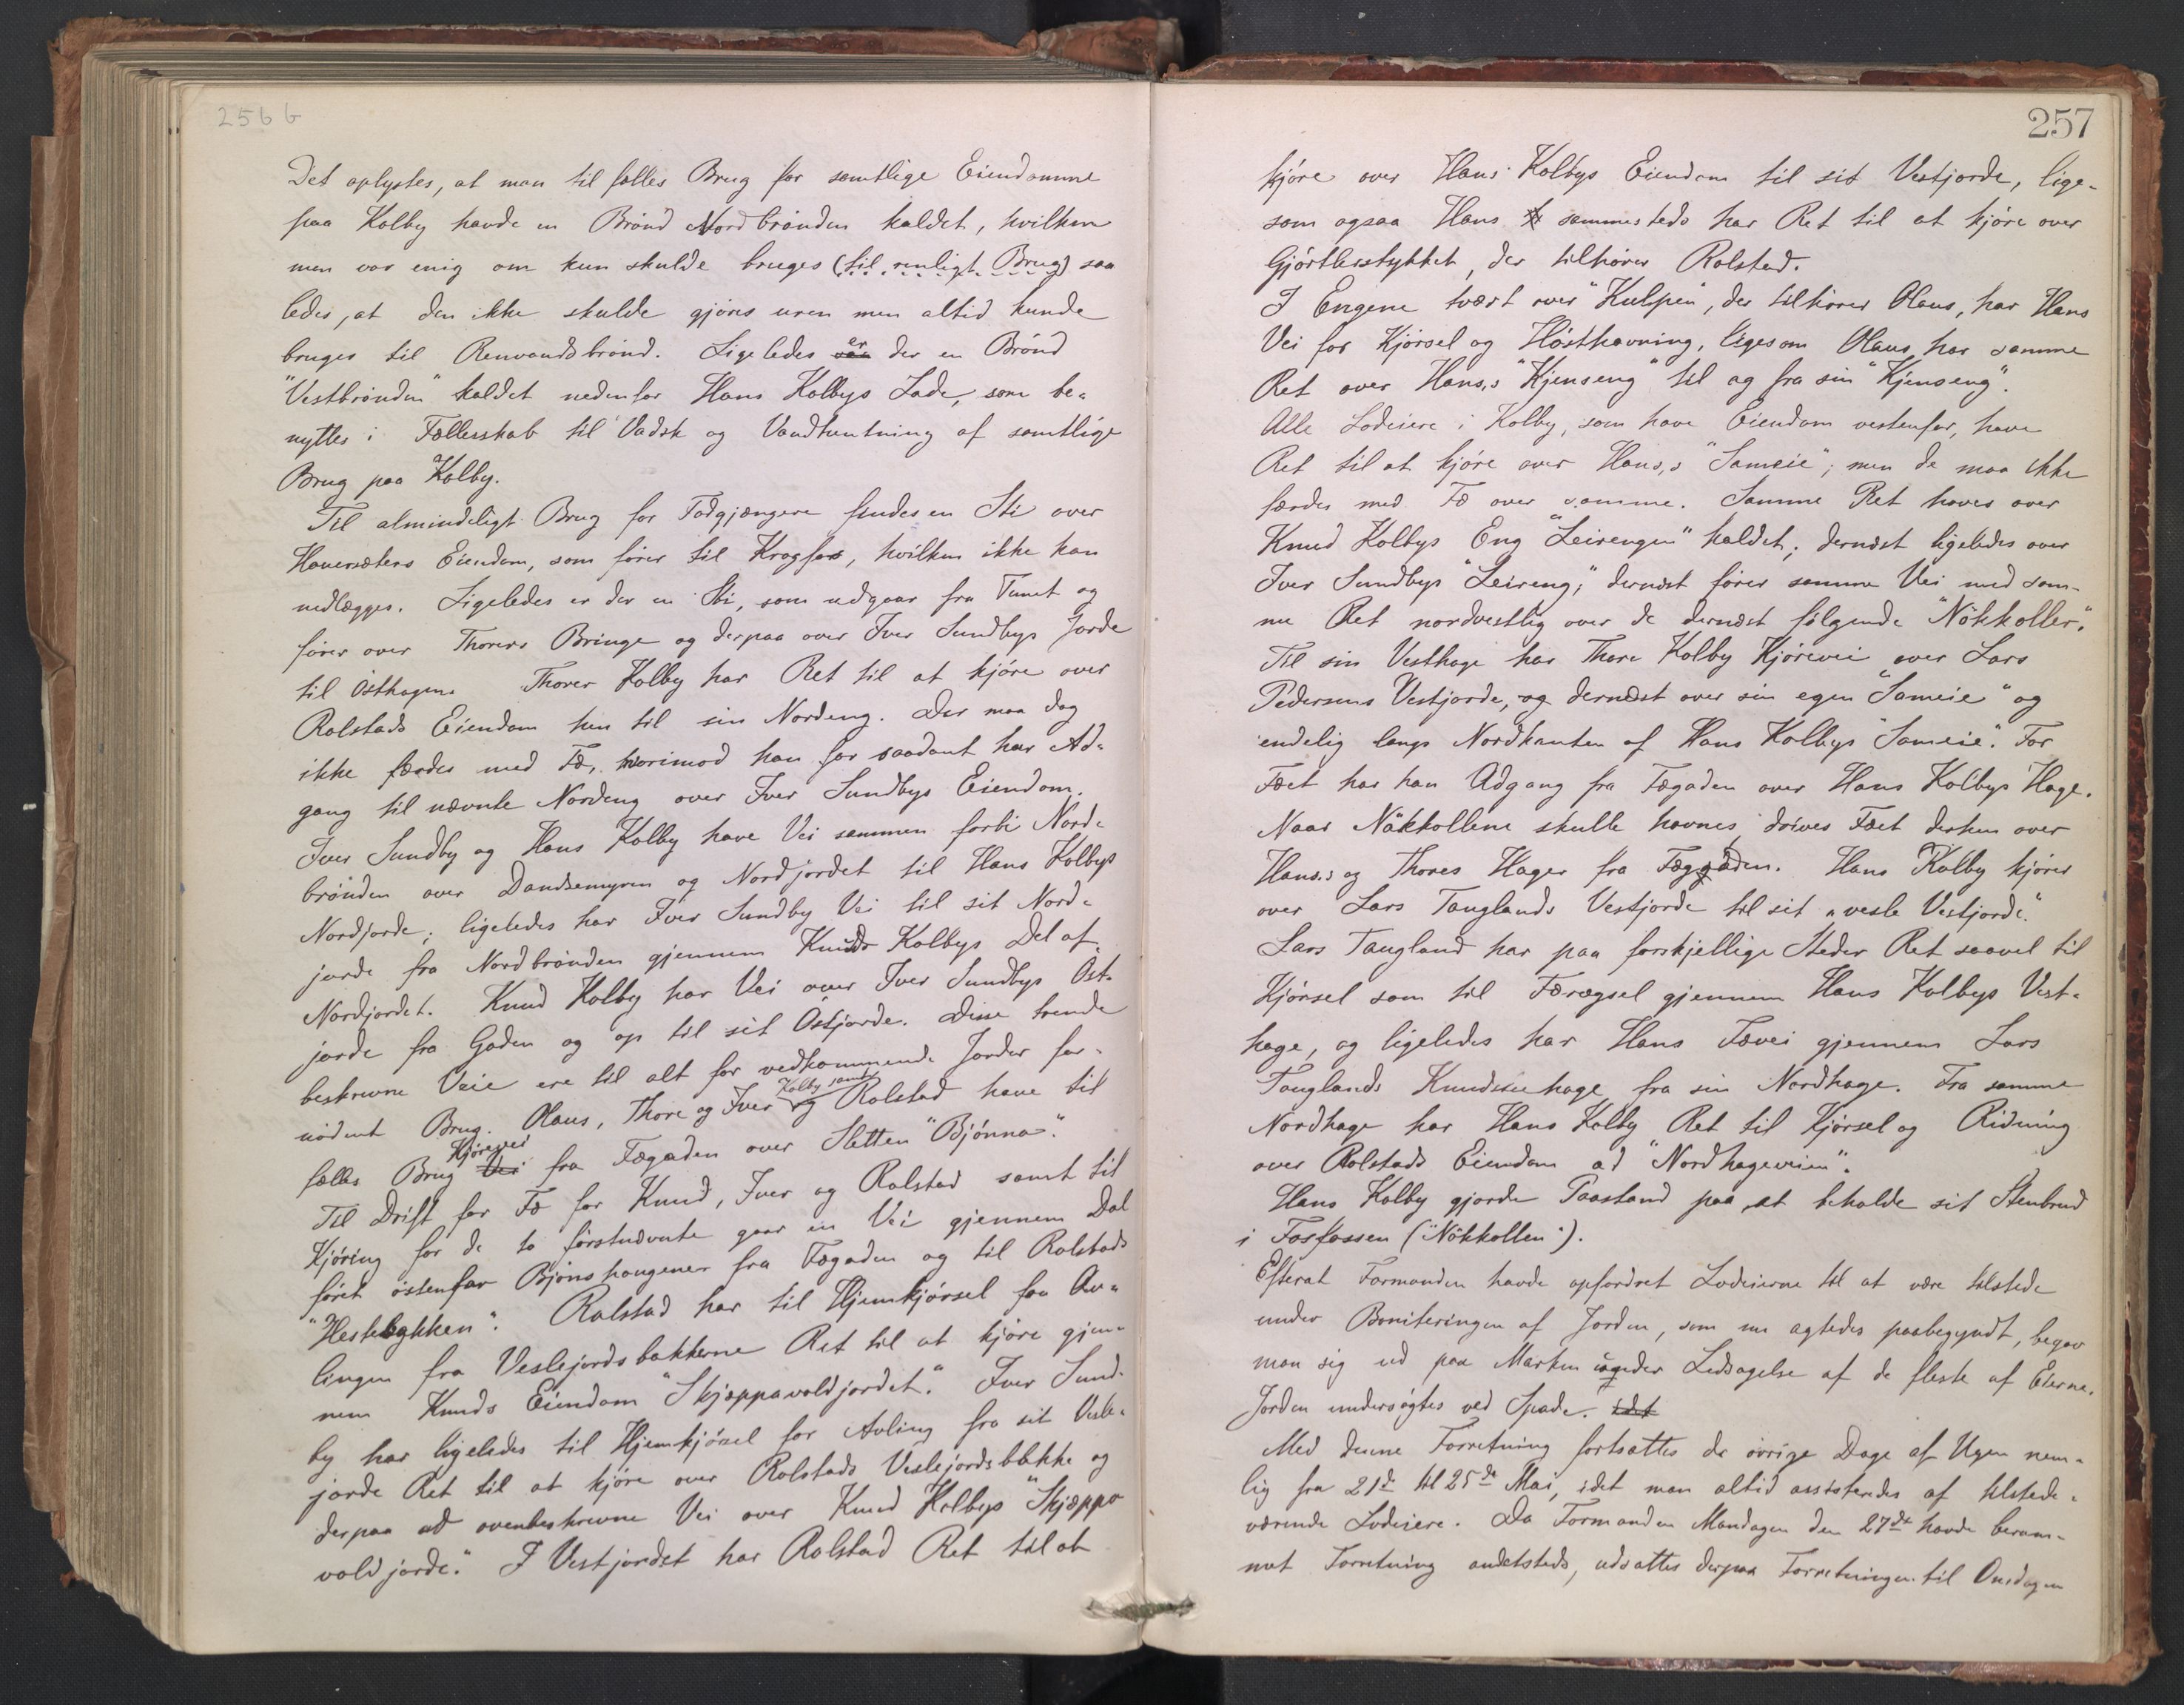 256 b
Det oplystes, at man til fælles Brug for samtlige Eiendomme
paa Kolby havde en Brönd Nordbrönden kaldet, hvilken
man var enig om kun skulde bruges (til renligt Brug) saa
ledes, at den ikke skulde gjöres uren men altid kunde
bruges til Renvandsbrönd. Ligeledes var er der en Brönd
"Vestbrönden" kaldet nedenfor Hans Kolbys Lade, som be-
nyttes i Fællesskab til Vadsk og Vandhentning af samtlige
Brug paa Kolby.
Til almindeligt Brug for Fodgjængere findes en Sti over
Haversæters Eiendom, som förer til Kragfos, hvilken ikke kan
nedlægges. Ligeledes er der en Sti, som udgaar fra Tunet og
förer over Thorers Bringe og derpaa over Iver Sundbys Jorde
til Östhagen. Thorer Kolby har Ret til at kjöre over
Rolstads Eiendom hen til sin Nordeng. Der maa dog
ikke færdes med Fæ, hvorimod han for saadant har Ad-
gang til nævnte Nordeng over Iver Sundbys Eiendom.
Iver Sundby og Hans Kolby have Vei sammen forbi Nord-
brönden over Dandsemyren og Nordjordet til Hans Kolbys
Nordjorde; ligeledes har Iver Sundby Vei til sit Nord-
jorde fra Nordbrönden gjennem Knuds Kolbys Del af
Nordjordet. Knud Kolby har Vei over Iver Sundbys Öst-
jorde fra Gaden og op til sit Östjorde. Disse trende
beskrevne Veie ere til alt for vedkommende Jorder for-
nödent Brug. Olaus, Thore og Iver og Kolby samt Rolstad have til
fælles Brug Vei Kjörevei fra Fægaden over Sletten "Bjönna".
Til Drift for Fæ for Knud, Iver og Rolstad samt til
Kjöring for de to förstnævnte gaar en Vei gjennem Dal
föret östenfor Bjönshaugener fra Fægaden og til Rolstads
"Hestelykken". Rolstad har til Hjemkjörsel fra Av-
lingen fra Veslejordsbakkerne Ret til at kjöre gjen-
nem Knuds Eiendom "Skjæppavoldjordet". Iver Sund-
by har ligeledes til Hjemkjörsel for Avling fra sit Vesle-
jorde Ret til at kjöre over Rolstads Veslejordsblekke og
derpaa ad ovenbeskrevne Vei over Knud Kolbys "Skjæppo
voldjorde". I Vestjordet har Rolstad Ret til at
257
kjöre over Hans Kolbys Eiendom til sit Vestjorde, lige-
som ogsaa Hans sammesteds har Ret til at kjöre over
Gjörtlerstykket, der tilhörer Rolstad.
I Engene tvært over "Kulpen", der tilhörer Olaus, har Hans
Vei for Kjörsel og Hösthavning, ligesom Olaus har samme
Ret over Hans,s "Kjenseng" til og fra sin "Kjenseng".
Alle Lodeiere i Kolby, som have Eiendom vestenfor, have
Ret til at kjöre over Hans,s "Sameie"; men de maa ikke
færdes med Fæ over samme. Samme Ret haves over
Knud Kolbys Eng "Leirengen" kaldet; dernæst ligeledes over
Iver Sundbys "Leireng;" dernæst förer samme Vei med sam-
me Ret nordvestlig over de dernæst fölgende "Nökkoller."
Til sin Vesthage har Thore Kolby Kjörevei over Lars
Pedersens Vestjorde, og dernæst over sin egen "Sameie" og
endelig langs Nordkanten af Hans Kolbys "Sameie". For
Fæet har han Adgang fra Fægaden over Hans Kolbys Hage.
Naar Nökkollene skulle havnes, drives Fæet derhen over
Hans,s og Thores Hager fra Fægaden. Hans Kolby kjörer
over Lars Tauglands Vestjorde til sit "vesle Vestjorde".
Lars Taugland har paa forskjellige Steder Ret saavel til
Kjörsel som til Færægsel gjennem Hans Kolbys Vest-
hage, og ligeledes har Hans Fævei gjennem Lars
Tauglands Knudsehage fra sin Nordhage. Fra samme
Nordhage har Hans Kolby Ret til Kjörsel og Ridning
over Rolstads Eiendom ad "Nordhageveien".
Hans Kolby gjorde Paastand paa at beholde sit Stenbrud
i Fosfossen ("Nökkollen").
Efterat Formanden havde opfordret Lodeierne til at være tilstede
under Boniteringen af Jorden, som nu agtedes paabegyndt, begav
man sig ud paa Marken under Ledsagelse af de fleste af Eierne.
Jorden undersögtes ved Spade. idet
Med denne Forretning fortsattes de övrige Dage af Ugen nem-
lig fra 21de til 25de Mai, idet man altid assisteredes af tilstede-
værende Lodeiere. Da Formanden Mandagen den 27de havde beram-
met Forretning andetsteds, udsattes derpaa Forretningen til Onsdagen